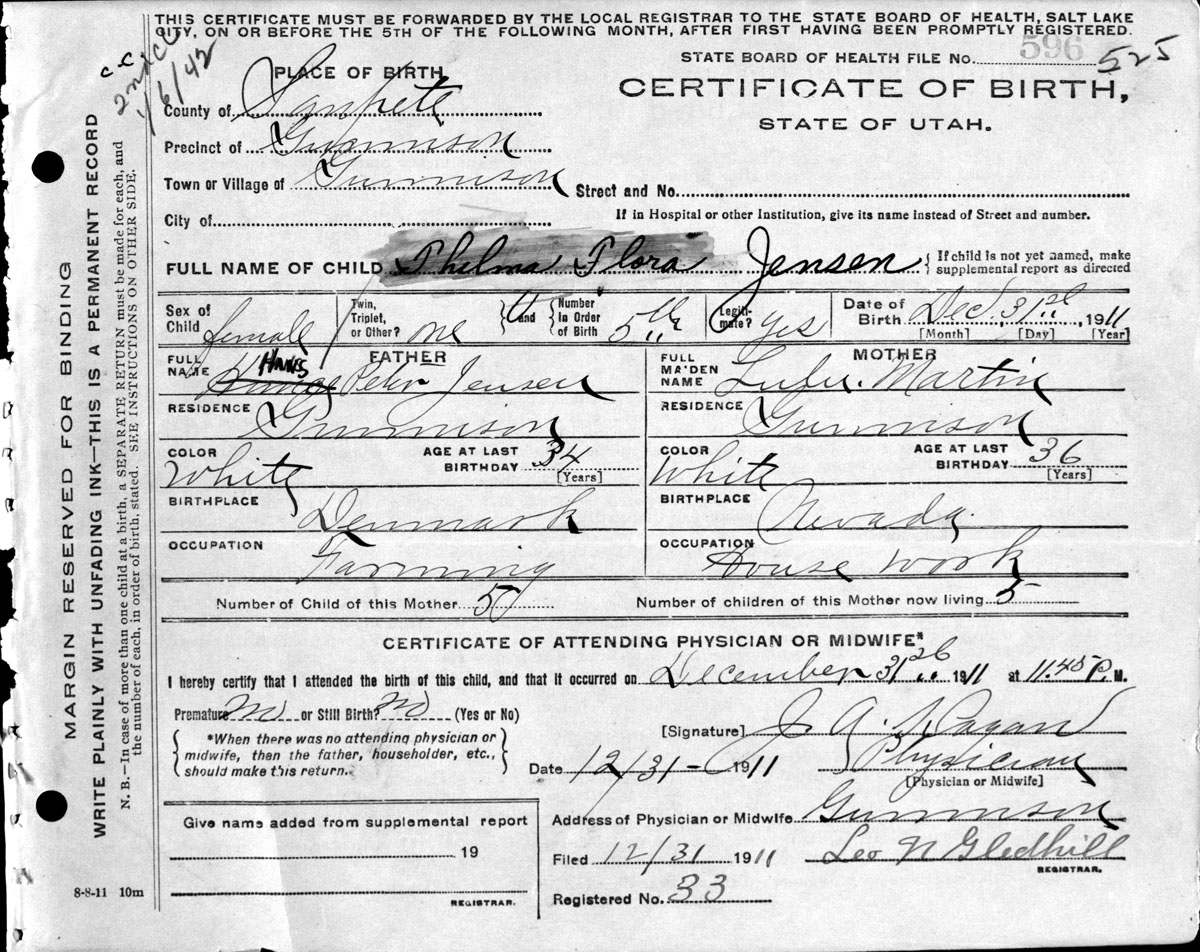 THIS CERTIFICATE MUST BE FORWARDED BY THE LOCAL REGISTRAR TO THE STATE BOARD OF HEALTH, SALT LAKE
CITY, ON OR BEFORE THE 5TH OF THE FOLLOWING MONTH, AFTER FIRST HAVING BEEN PROMPTLY REGISTERED.
C.C.
1/6/42
STATE BOARD OF HEALTH FILE No. 596 525
PLACE OF BIRTH
CERTIFICATE OF BIRTH,
STATE OF UTAH.
County of Sanpete
Precinct of Gunnison
Town or Village of Gunnison Street and No.
City of If in Hospital or other Institution, give its name instead of Street and number.
FULL NAME OF CHILD Thelma Flora Jensen { If child is not yet named, make
supplemental report as directed
Sex of Child female Twin, Triplet, or Other? one { and { Number in Order of Birth 5th Legiti-mate? Yes Date of Birth Dec. 31st, 1911
[Month] [Day] [Year]
FATHER
FULL NAME Hans Peter Jensen
RESIDENCE Gunnison
COLOR White AGE AT LAST BIRTHDAY 34
[Years]
BIRTHPLACE Denmark
OCCUPATION Farming
MOTHER
FULL MAIDEN NAME Lulu. Martin
RESIDENCE Gunnison
COLOR White AGE AT LAST BIRTHDAY 36
[Years]
BIRTHPLACE Nevada.
OCCUPATION House work
Number of Child of this Mother 5 Number of children of this Mother now living 5
CERTIFICATE OF ATTENDING PHYSICIAN OR MIDWIFE*
I hereby certify that I attended the birth of this child, and that it occurred on December 31st 1911 at 11.45 P. M.
Premature No or Still Birth? No (Yes or No)
*When there was no attending physician or
midwife, then the father, householder, etc.,
should make this return.
[Signature] J. A.
Date 12/31- 1911 Physician
[Physician or Midwife]
Give name added from supplemental report
19
REGISTRAR.
Address of Physician or Midwife Gunnison
Filed 12/31 1911 Leo N Gledhill
REGISTRAR.
Registered No. 33
8-8-11 10m
MARGIN RESERVED FOR BINDING
WRITE PLAINLY WITH UNFADING INK—THIS IS A PERMANENT RECORD
N. B.—In case of more than one child at a birth, a SEPARATE RETURN must be made for each, and
the number of each, in order of birth, stated. SEE INSTRUCTIONS ON OTHER SIDE.